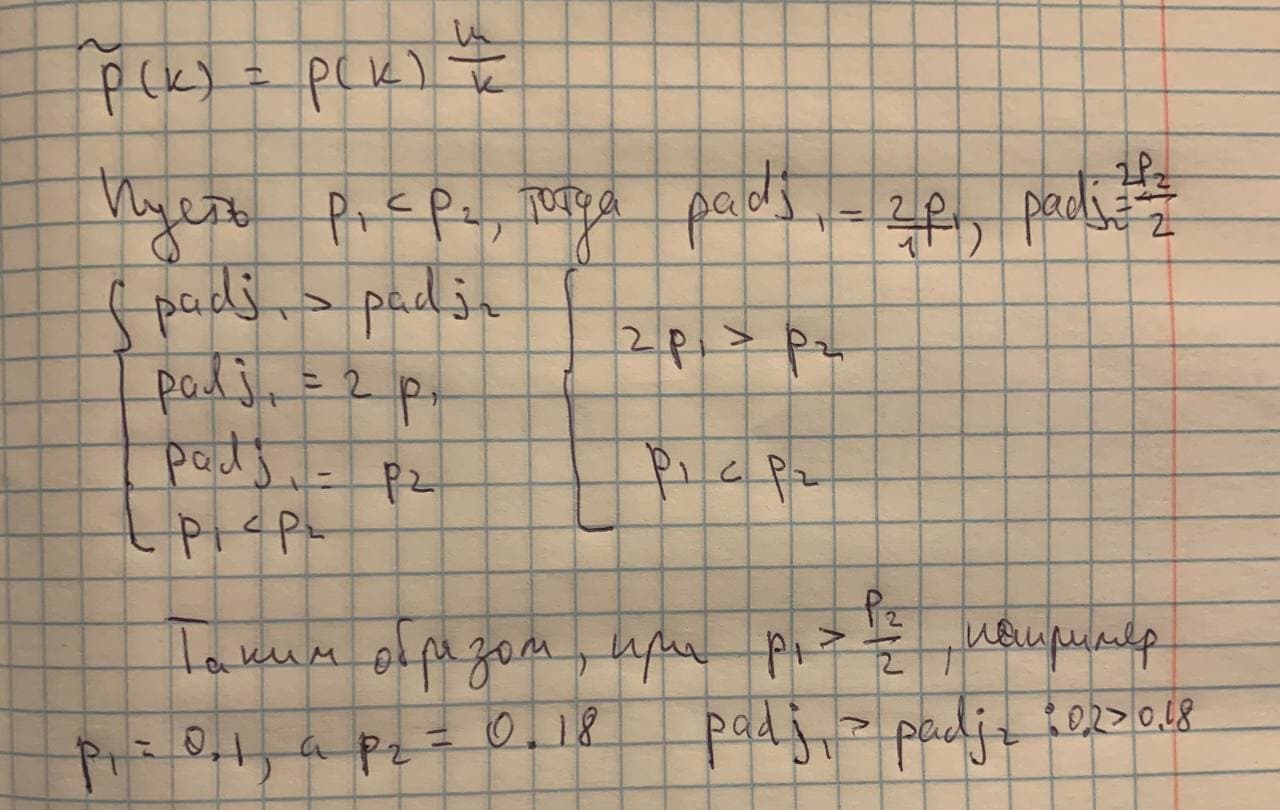 p̃(k) = p(k) m/k
Пусть p₁ < p₂, тогда padj₁ = 2p₁/1, padj₂ = 2p₂/2
{ padj₁ > padj₂ { 2p₁ > p₂
padj₁ = 2 p₁
padj₁ = p₂ p₁ < p₂
p₁ < p₂
Таким образом, при p₁ > p₂/2, например
p₁ = 0.1, а p₂ = 0.18 padj₁ > padj₂ : 0.2 > 0.18